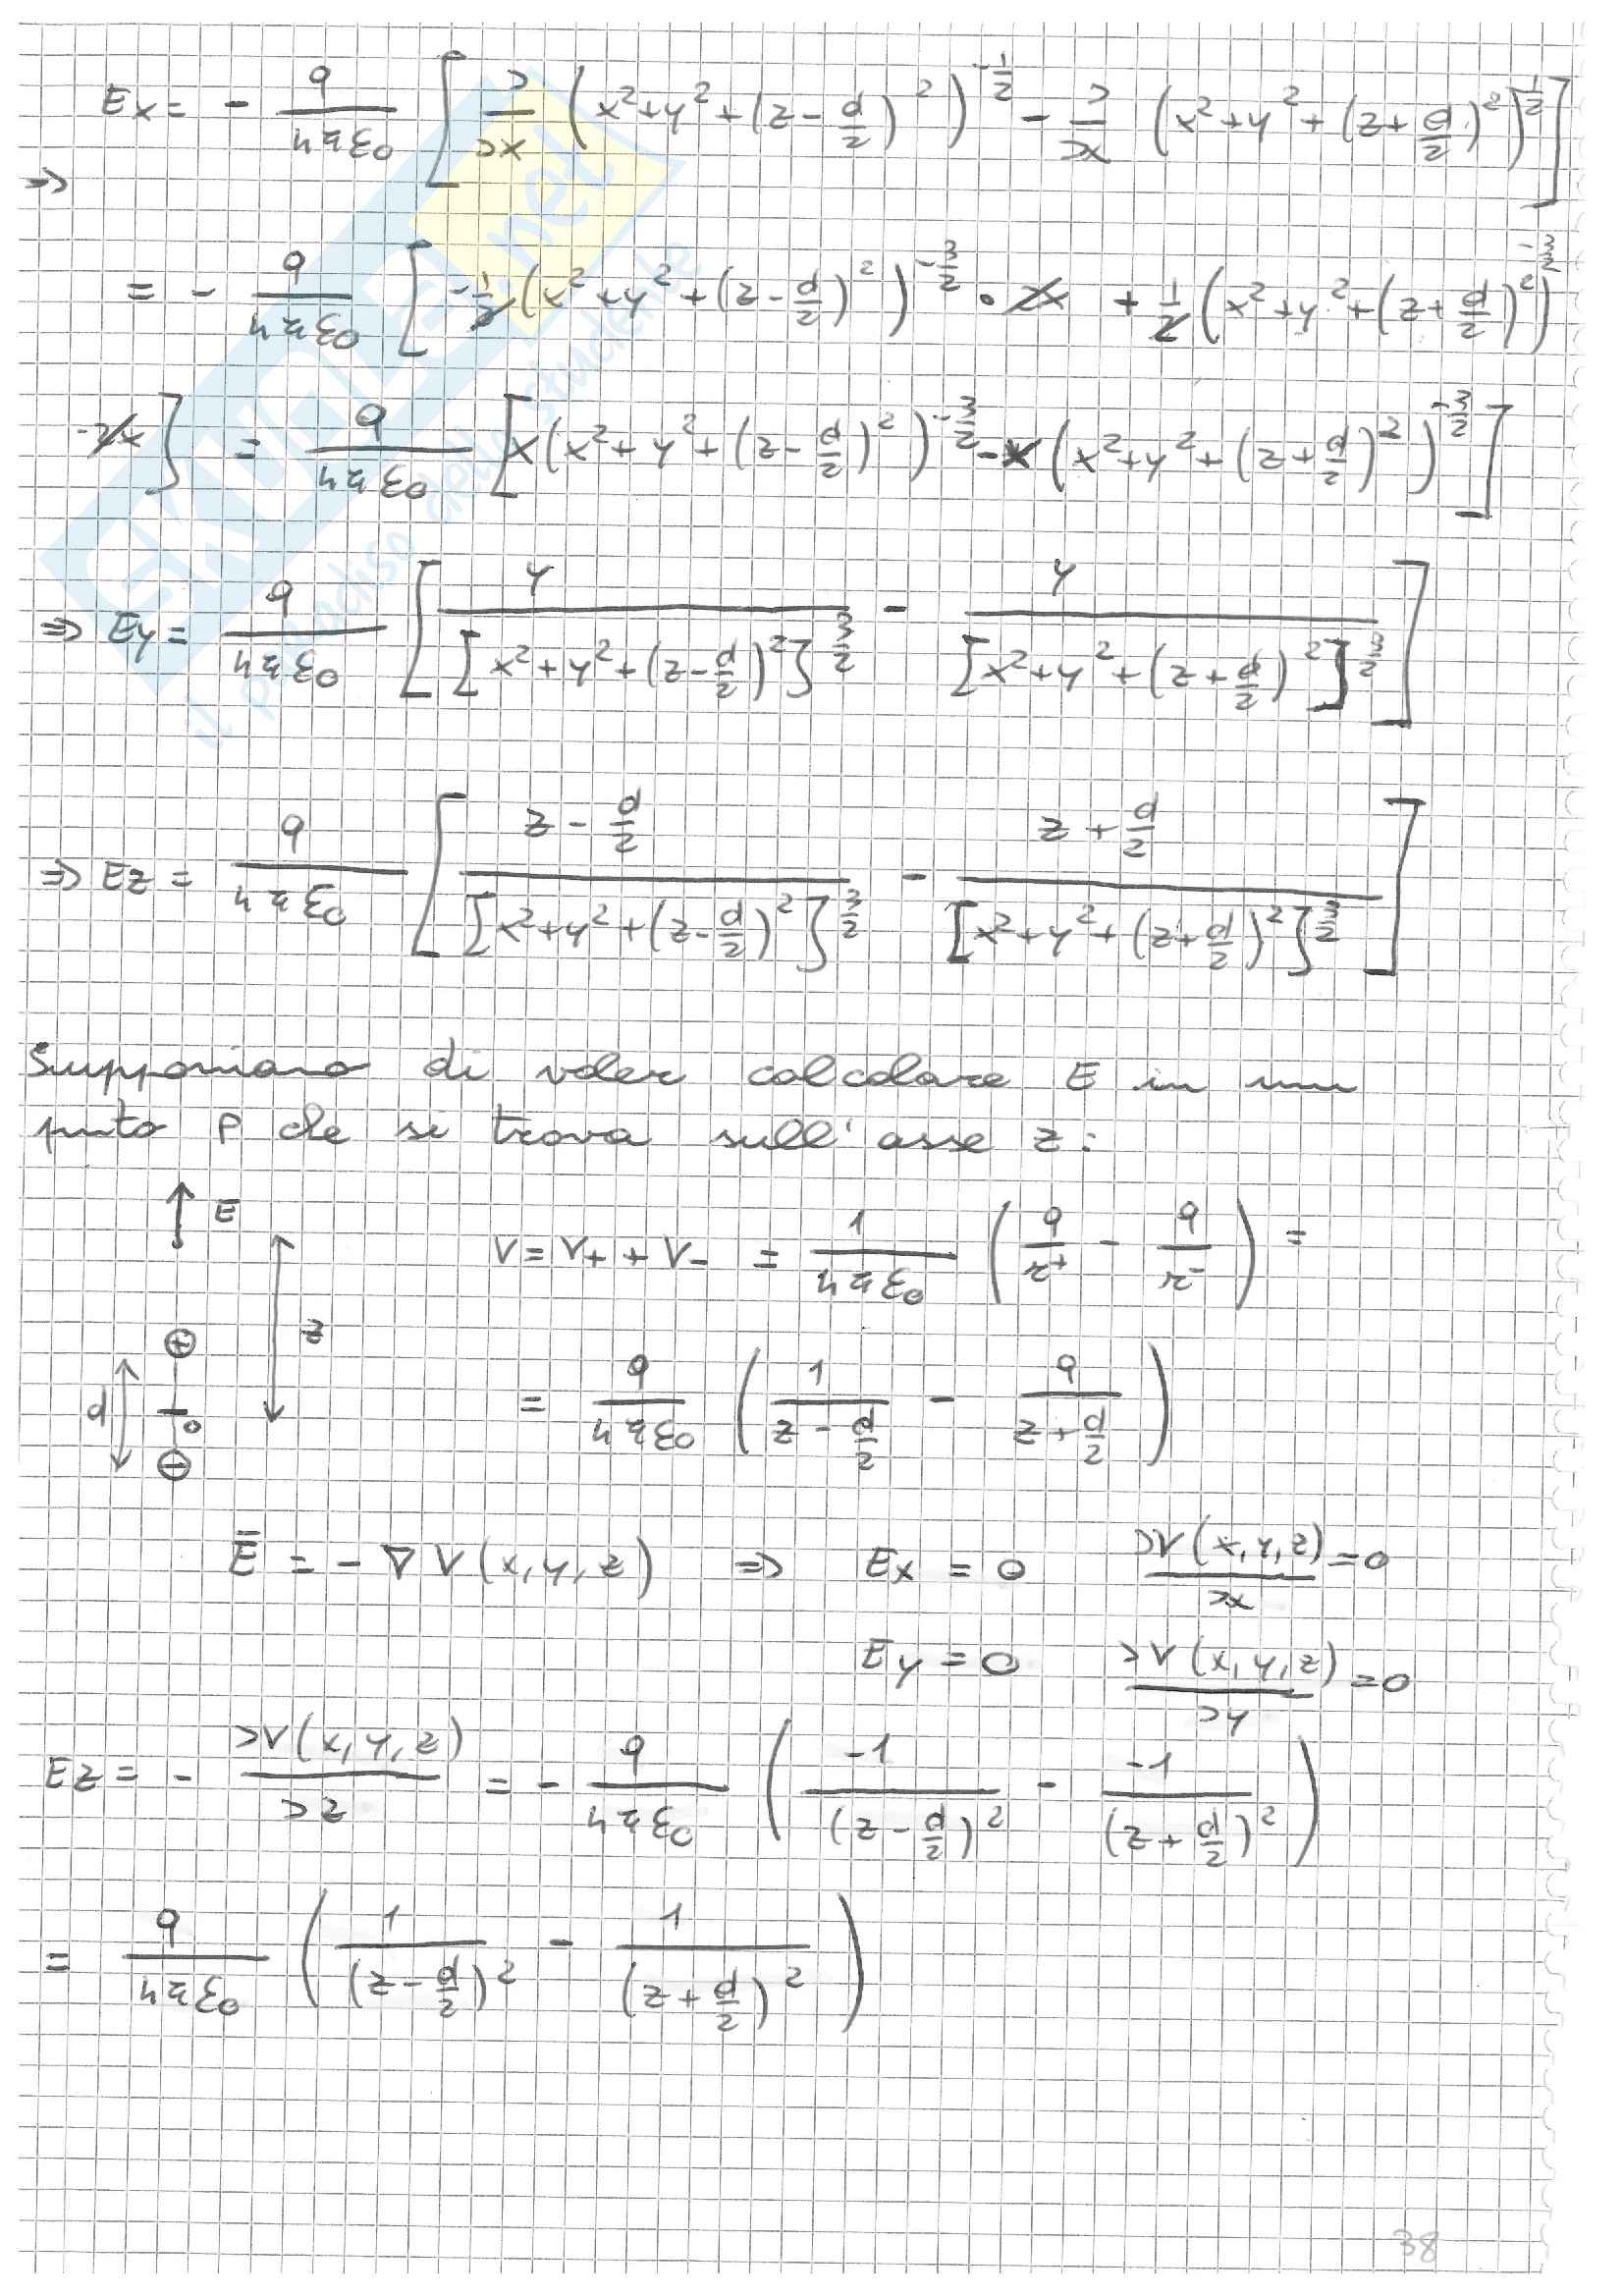 ⇒ Ex = - q/4πε₀ [ ∂/∂x (x²+y²+(z-d/2)²)^-1/2 - ∂/∂x (x²+y²+(z+d/2)²)^1/2 ]
= - q/4πε₀ [ -1/2 (x²+y²+(z-d/2)²)^-3/2 · 2x + 1/2 (x²+y²+(z+d/2)²)^-3/2
·2x ] = q/4πε₀ [ x(x²+y²+(z-d/2)²)^-3/2 - x(x²+y²+(z+d/2)²)^-3/2 ]
⇒ Ey = q/4πε₀ [ y/[x²+y²+(z-d/2)²]^3/2 - y/[x²+y²+(z+d/2)²]^3/2 ]
⇒ Ez = q/4πε₀ [ z-d/2/[x²+y²+(z-d/2)²]^3/2 - z+d/2/[x²+y²+(z+d/2)²]^3/2 ]
Supponiamo di voler calcolare E in un
punto P che si trova sull'asse z:
E
z
d
+
0
-
V = V₊ + V₋ = 1/4πε₀ ( q/r⁺ - q/r⁻ ) =
= q/4πε₀ ( 1/z-d/2 - q/z+d/2 )
E = - ∇ V(x,y,z) ⇒ Ex = 0 ∂V(x,y,z)/∂x = 0
Ey = 0 ∂V(x,y,z)/∂y = 0
Ez = - ∂V(x,y,z)/∂z = - q/4πε₀ ( -1/(z-d/2)² - -1/(z+d/2)² )
= q/4πε₀ ( 1/(z-d/2)² - 1/(z+d/2)² )
38